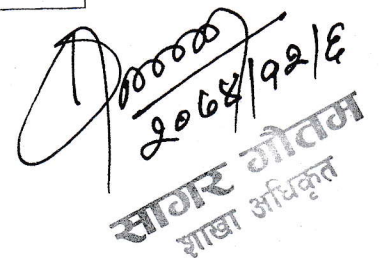 २०७४/१२/६
सागर गौतम
शाखा अधिकृत